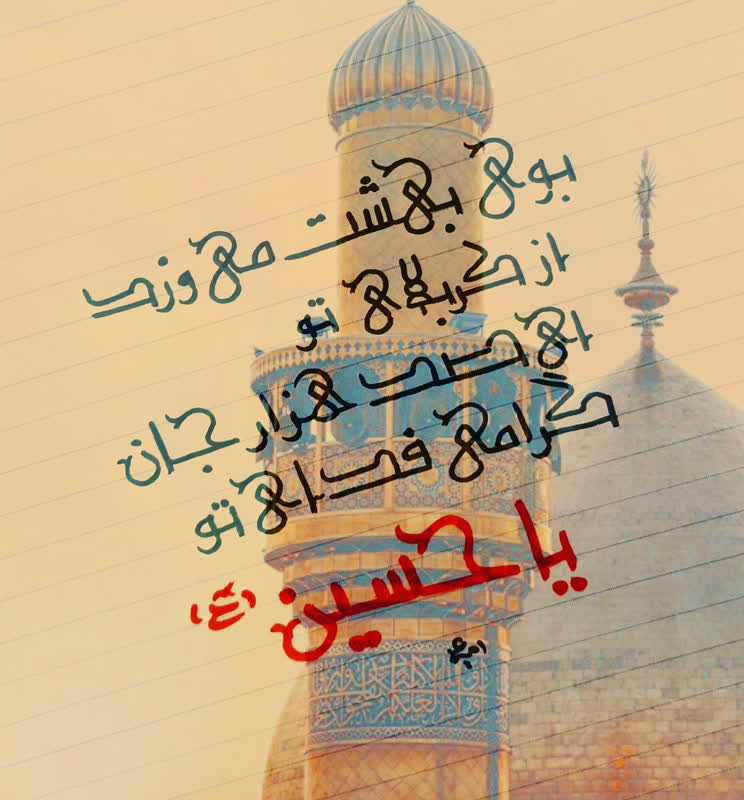 بوی بهشت می وزد
از کربلای تو
ای صد هزار جان
گرامی فدای تو
یا حسین (ع)